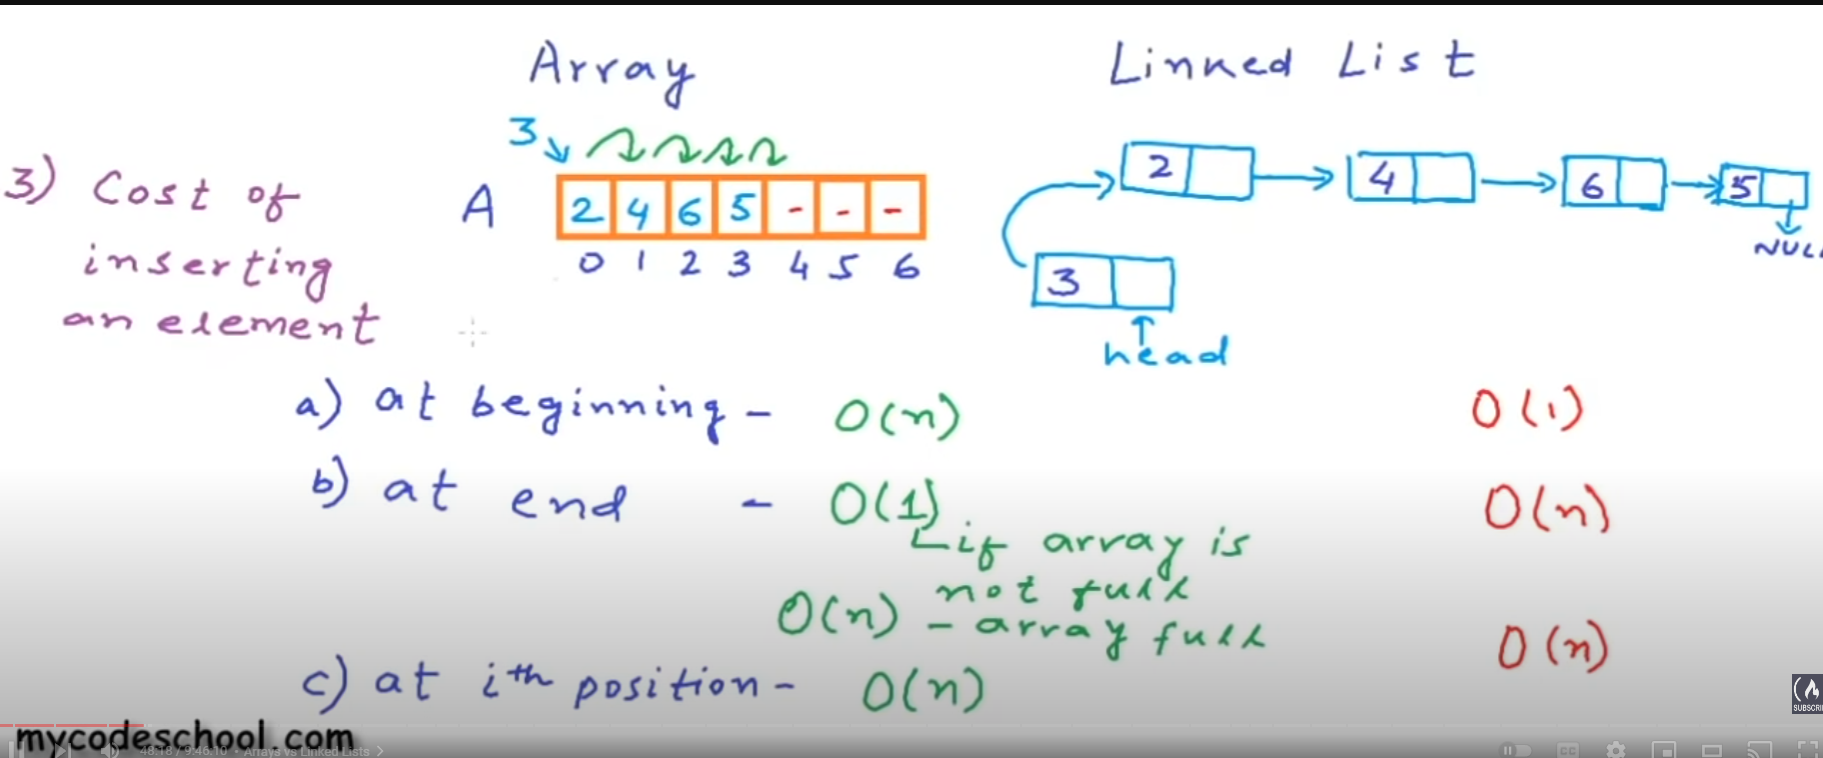 Array
Linked List
3
3) Cost of
inserting
an element
A
2 4 6 5 - - -
0 1 2 3 4 5 6
2
4
6
5
NULL
3
head
a) at beginning - O(n)
O(1)
b) at end - O(1)
O(n)
if array is
not full
O(n) - array full
O(n)
c) at ith position - O(n)
mycodeschool.com
48:18 / 9:46:10 • Arrays vs Linked Lists >
CC
SUBSCRI